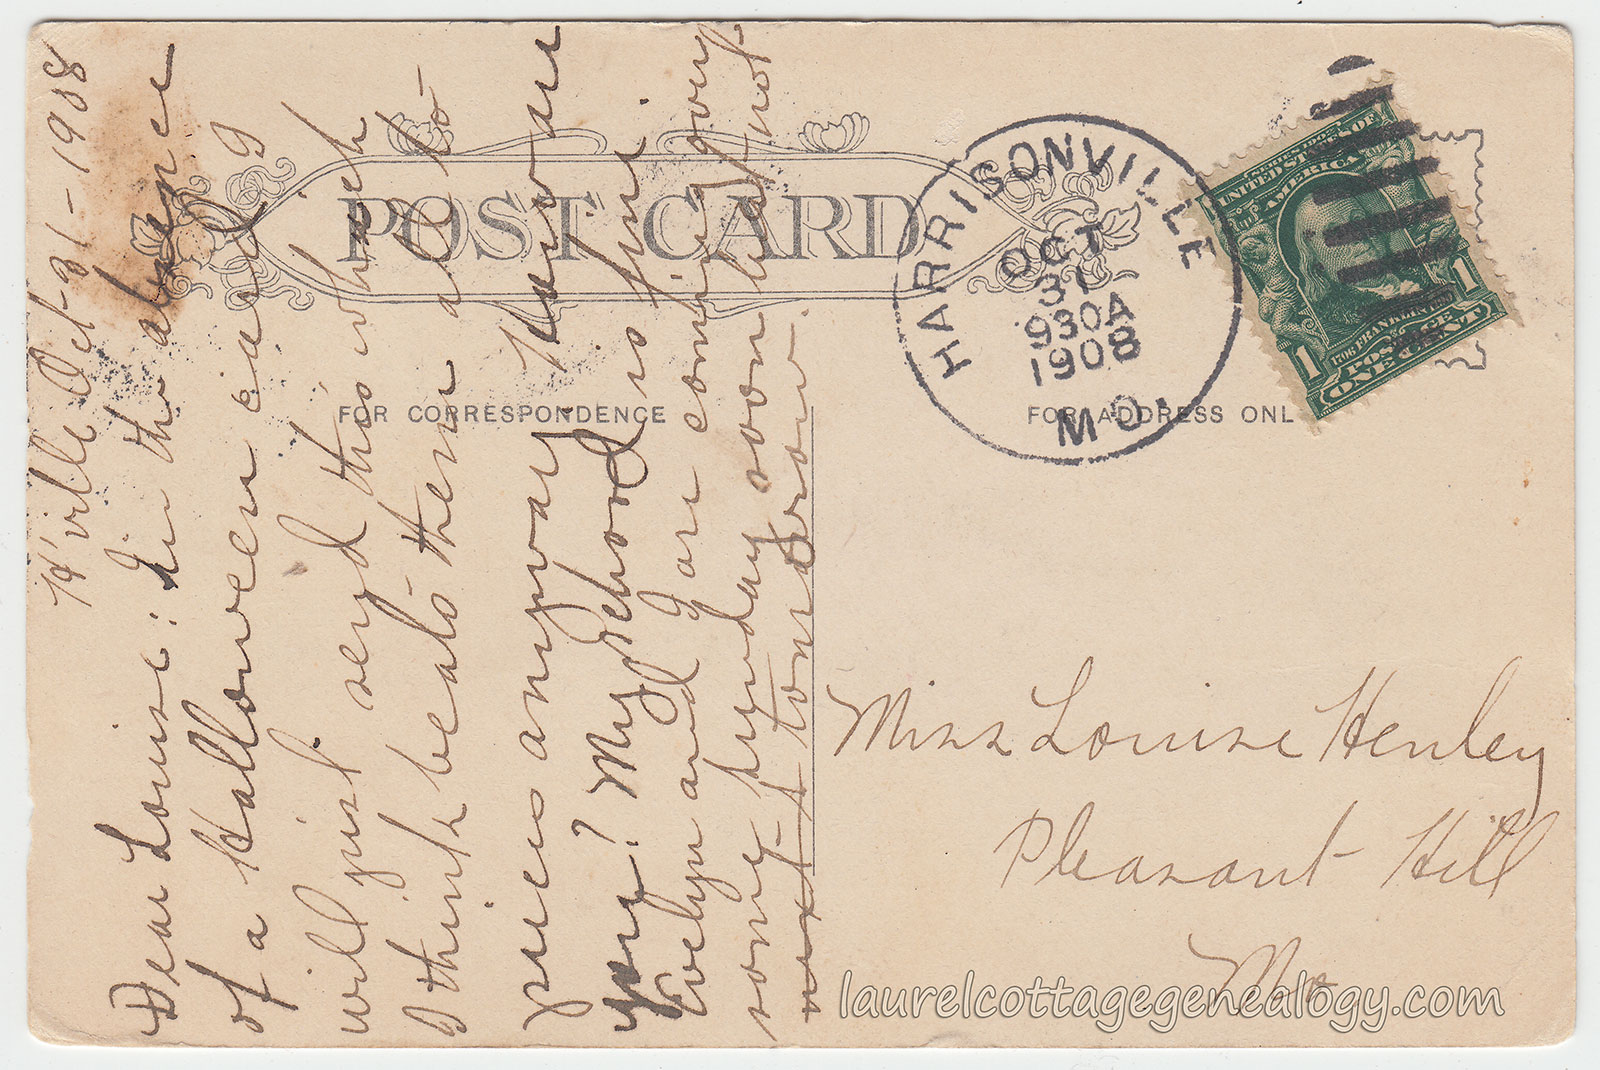 H'ville Oct-31-1908
Dear Louise: In the absence
of a Hallowe'en card I
will just send this which
I think beats them all to
pieces anyway. How are
you? My School is fine.
Evelyn and I are coming over
some Sunday soon but not
next tomorrow.
POST CARD
FOR CORRESPONDENCE
FOR ADDRESS ONL
HARRISONVILLE
OCT
31
930A
1908
MO.
SERIES 1902
UNITED STATES OF
AMERICA
1706 FRANKLIN
POSTAGE
1 ONE CENT 1
Miss Louise Henley
Pleasant Hill
Mo
laurelcottagegenealogy.com